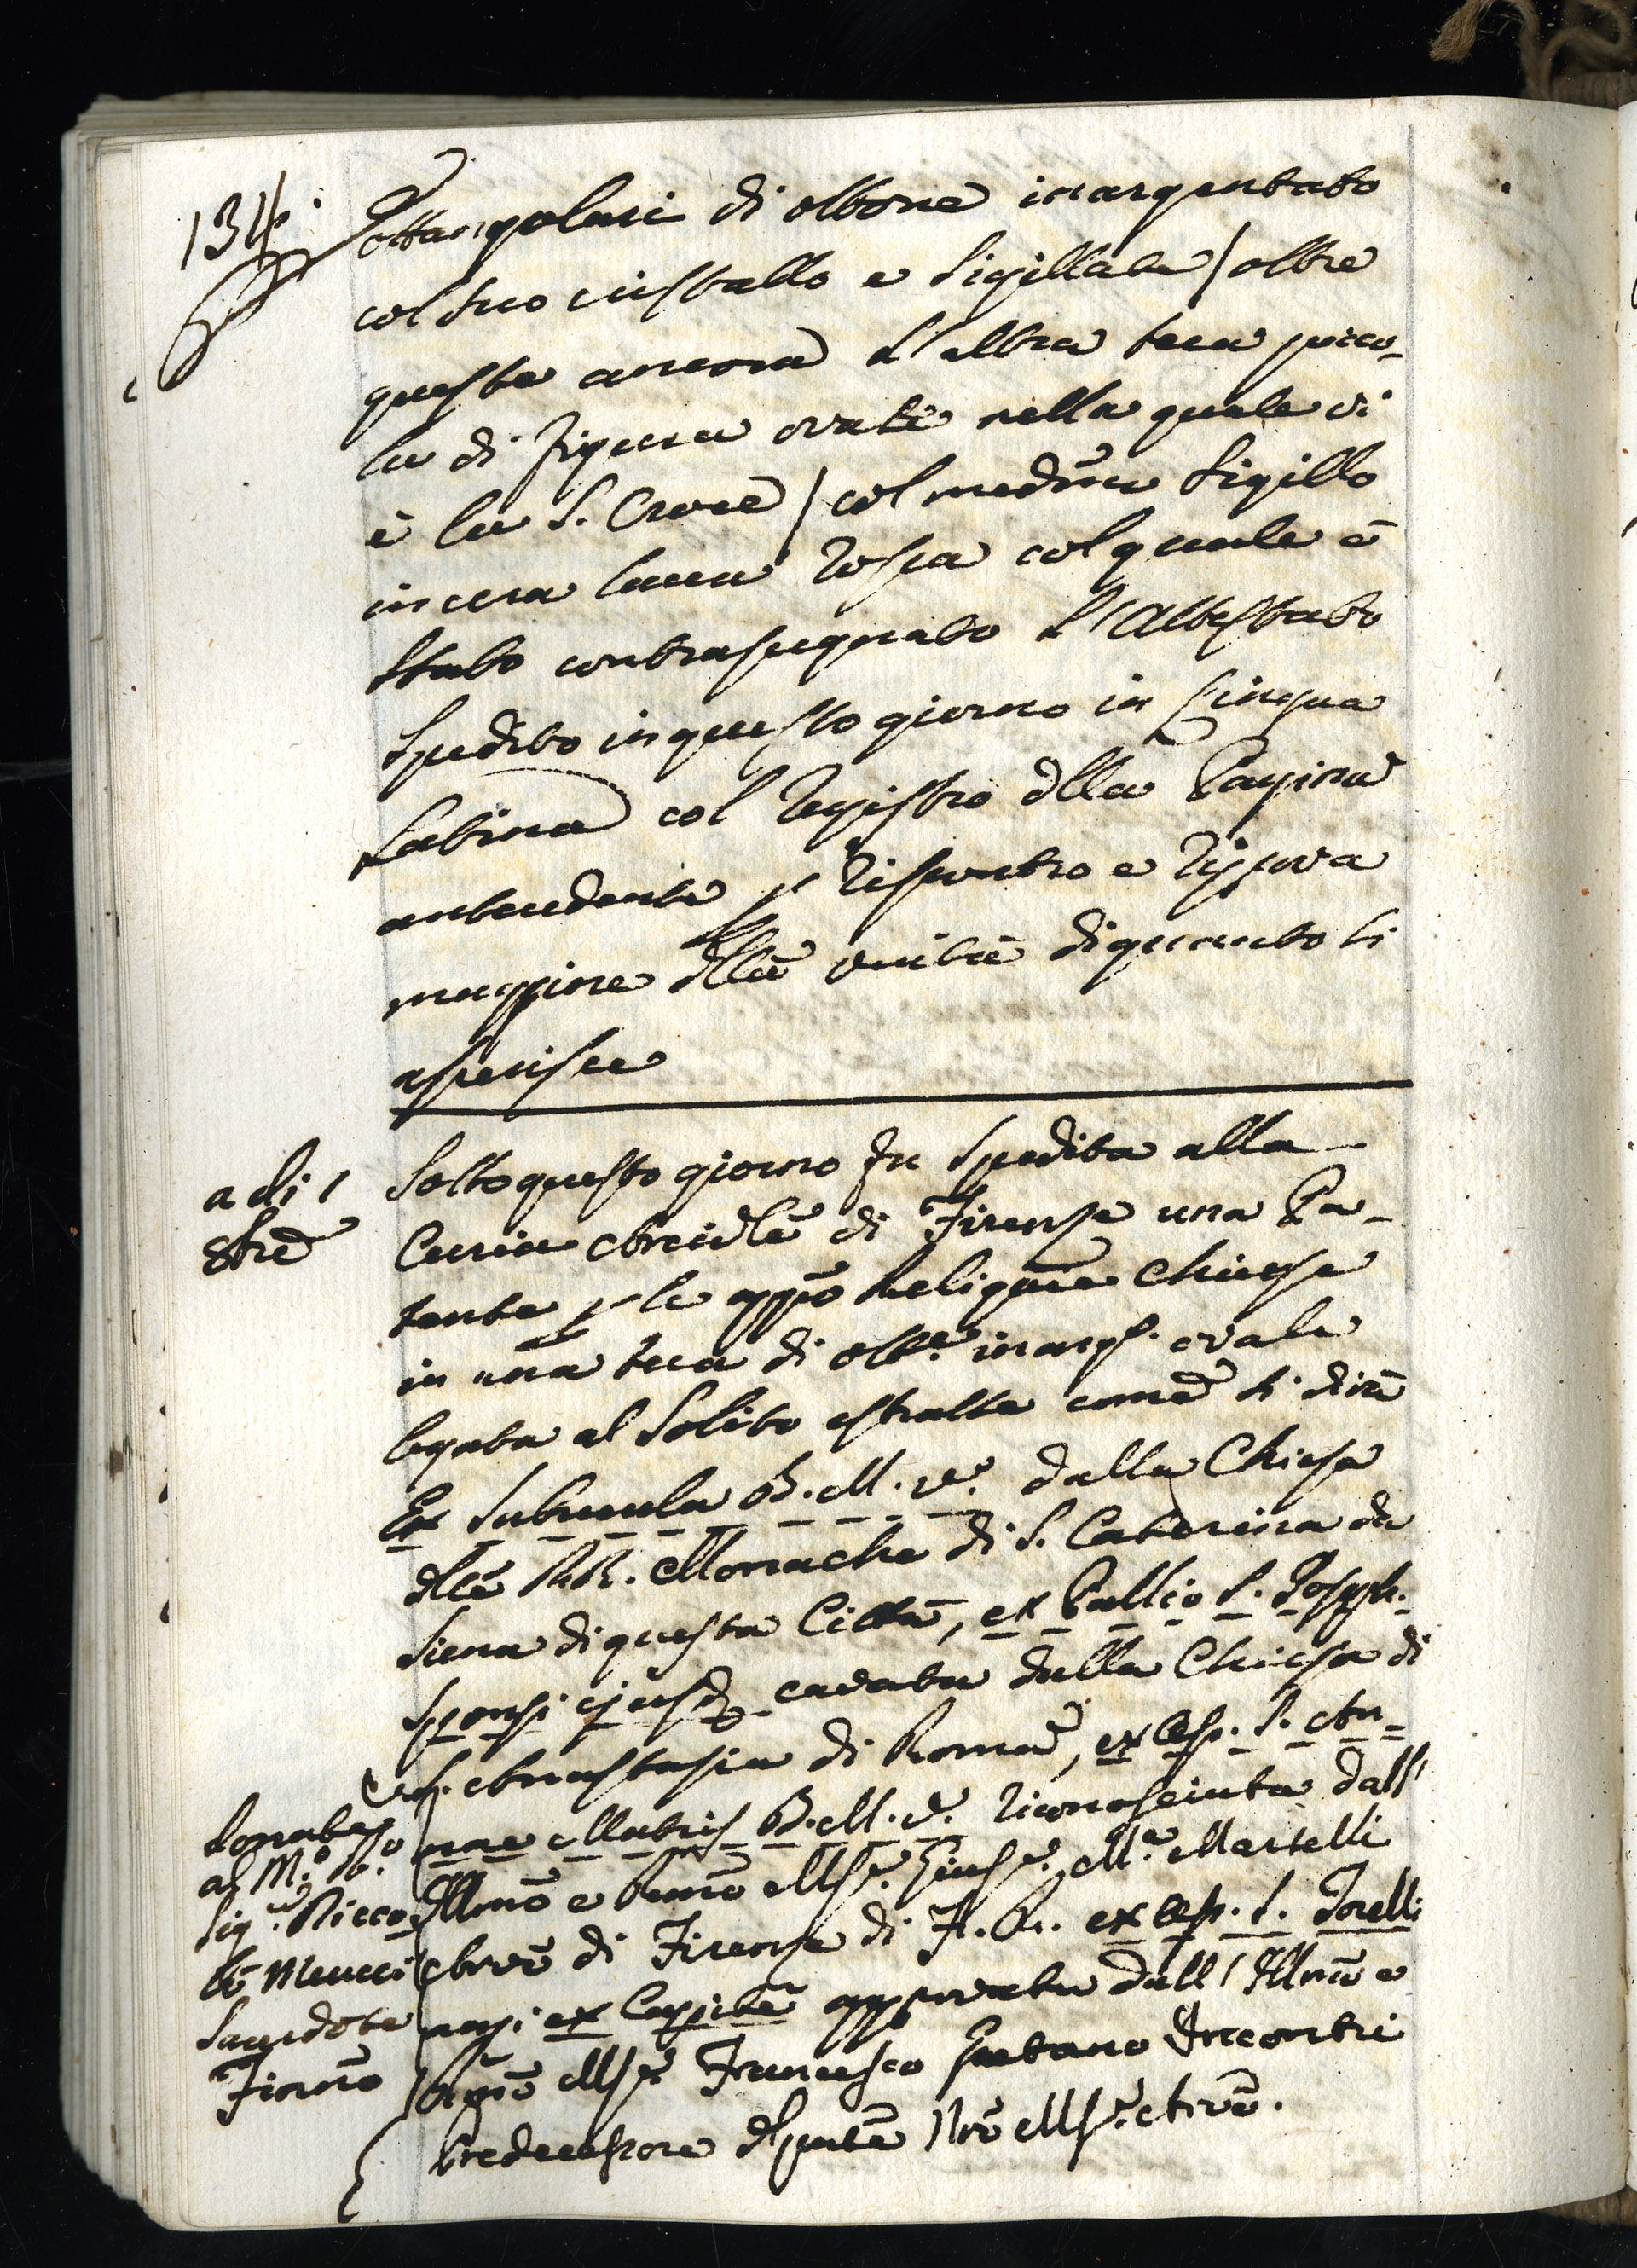 134
ottangolari di ottone inargentato
col suo cristallo e sigillate / oltre
queste ancora l'altra teca picco-
la di figura ovale nella quale vi
è la S. Croce / col medmo sigillo
in cera lacca rossa col quale è
stato contrassegnato l'Attestato
spedito in questo giorno in Lingua
Latina col Registro dlla Pagina
antecedente p riscontro e riprova
maggiore dlla verità di quanto si
asserisce
a di 1
8bre
Sotto questo giorno fu spedita alla
Curia Arcivle di Firenze una Pa-
tente p le appo Reliquie chiuse
in una teca di otte. inargt. ovale
legata al solito estratte come si dirà
Ex Subucula B. M. V. dalla Chiesa
dlle RR. Monache di S. Caterina da
Siena di questa Città, ex Pallio S. Joseph.
Sponsi ejusd. cavata dalla Chiesa di
S. Anastasia di Roma, ex Caps. S. An-
nae Matris B. M. V. riconosciuta dall'
Illmo e Rmo Msr. Giuse. Ma. Martelli
Arcvo di Firenze di F. R. ex Caps. S. Torelli
ex Capite approvata dall' Illmo e
Rmo Msr Francesco Gaetano Incontri
Predecessore dl pnte Nro Msr. Arcvo.
Donata
al M.o Rdo
Sigre. Ricco
Meucci
Sacerdote
Fiorno